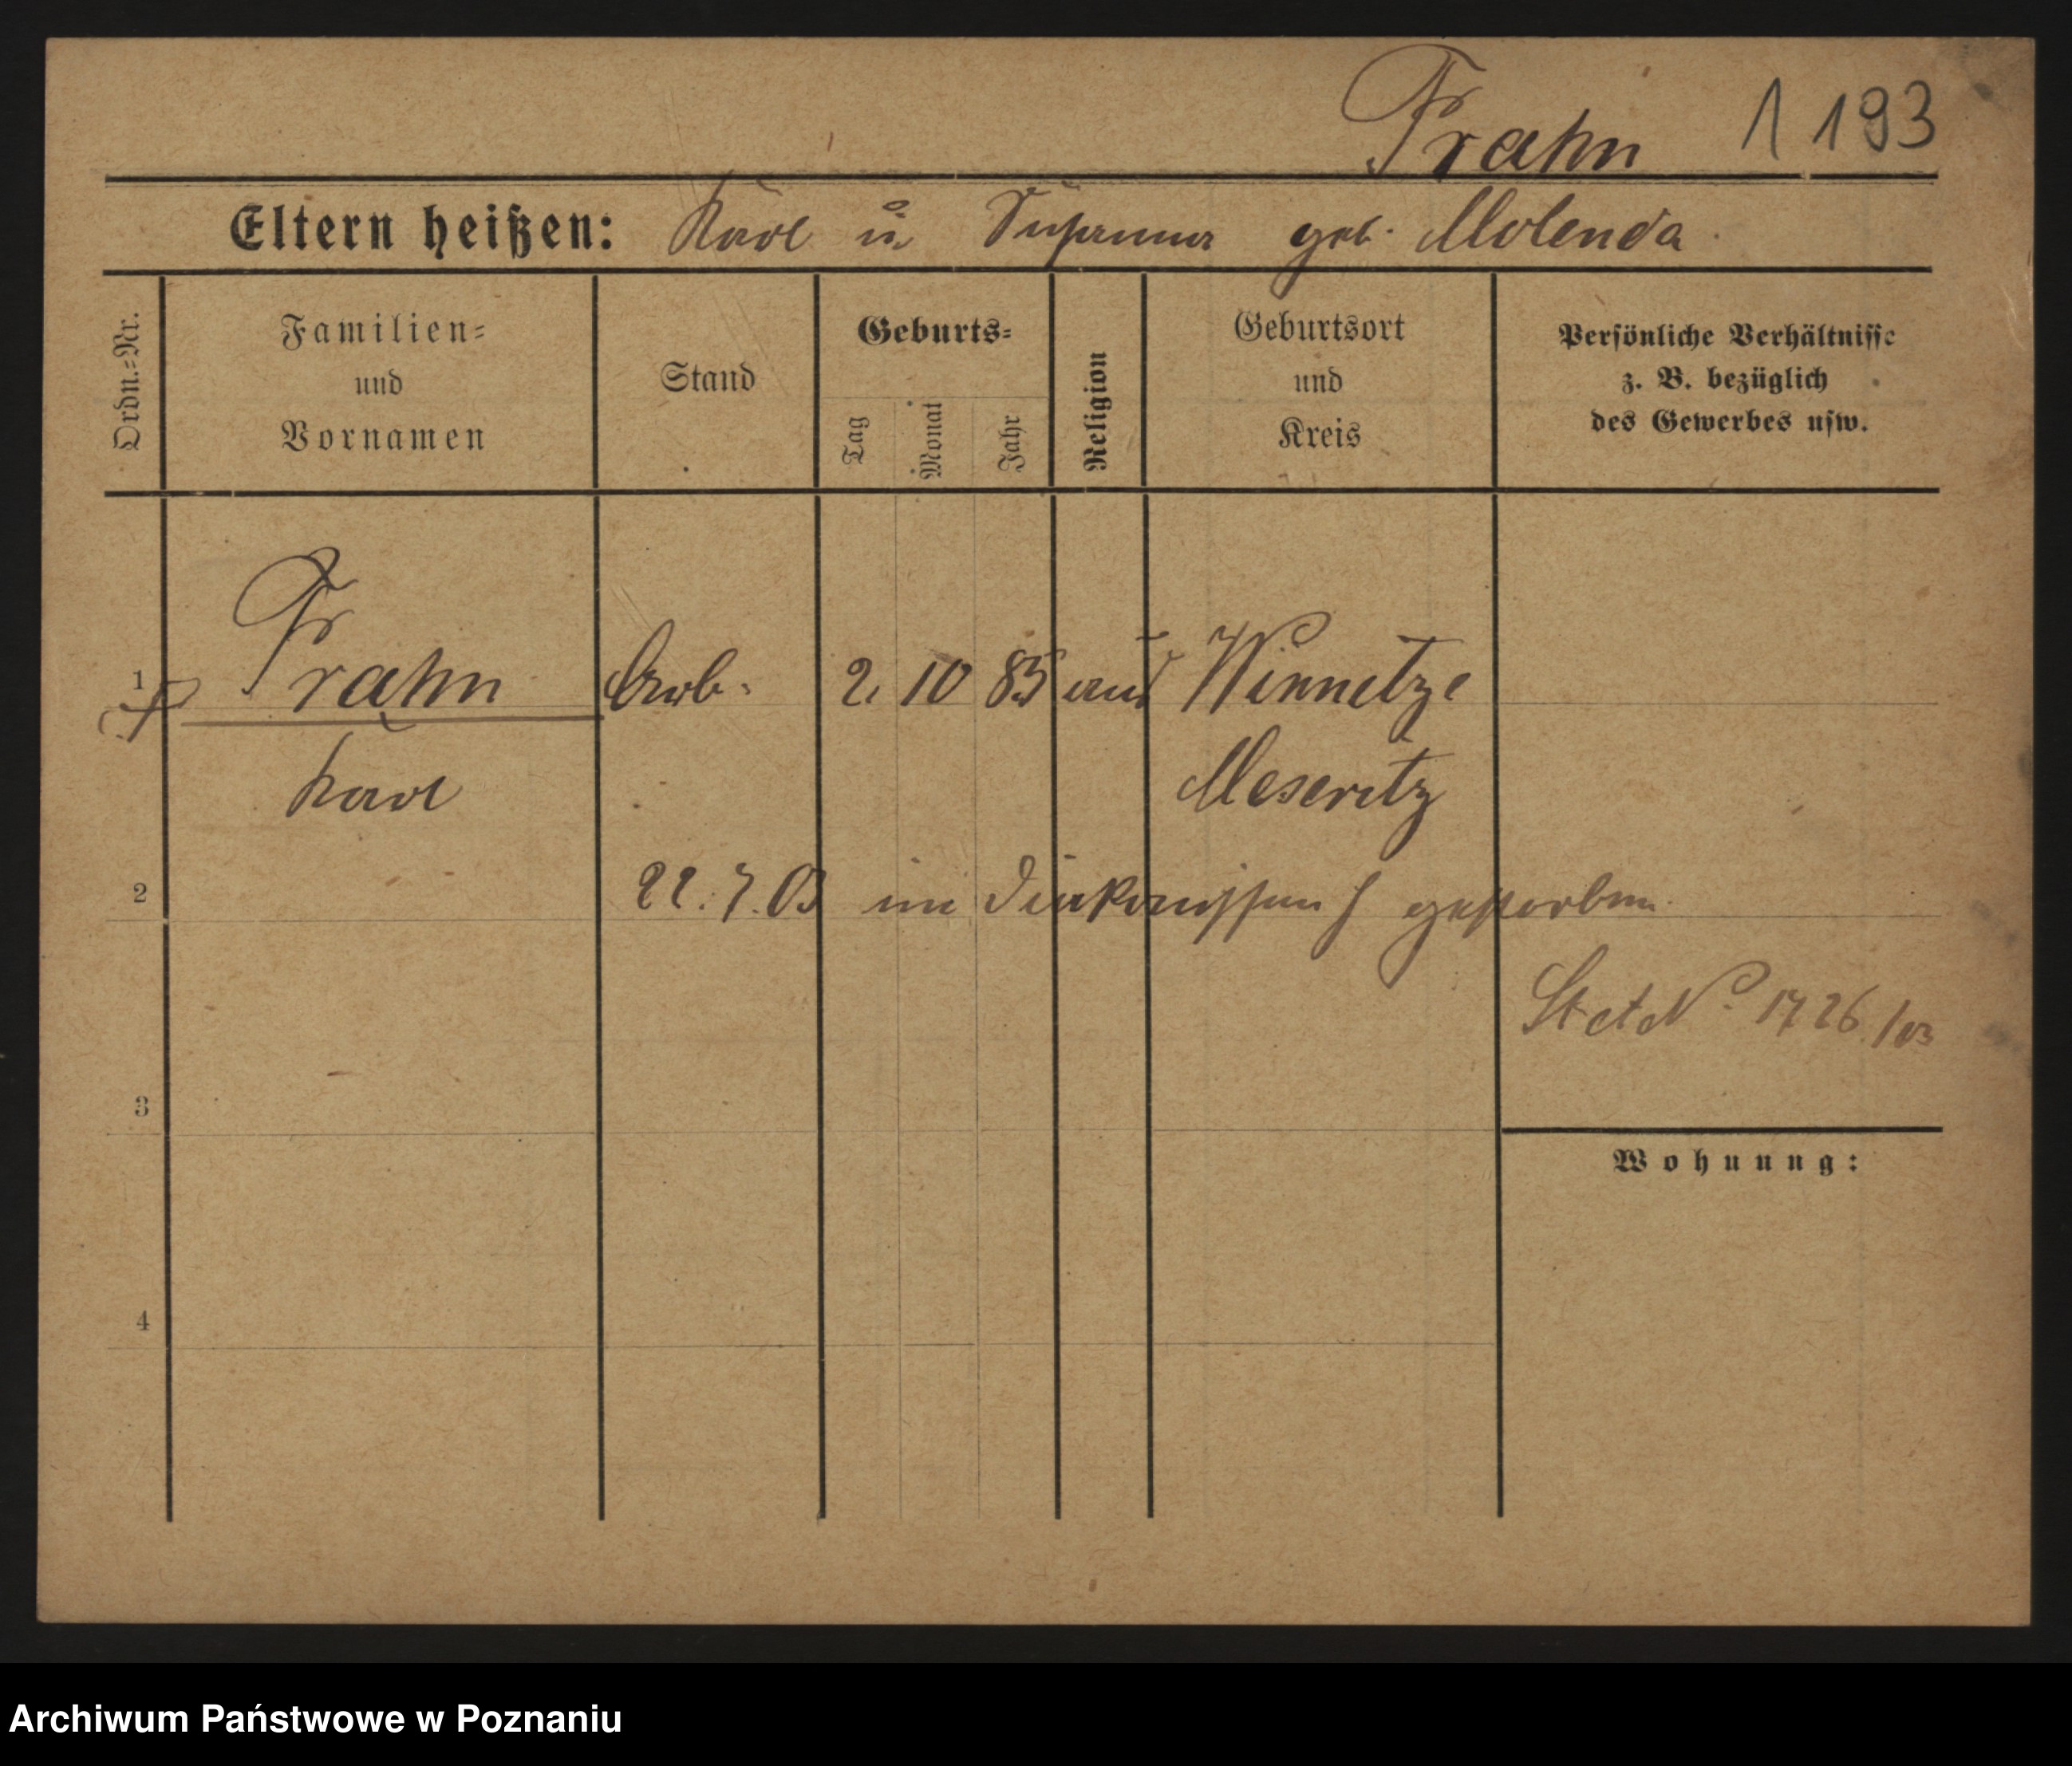 Prahn 1 193
Eltern heißen: Karl u Susanna geb. Molenda
Ordn.-Nr.
Familien-
und
Vornamen
Stand
Geburts-
Tag
Monat
Jahr
Religion
Geburtsort
und
Kreis
Persönliche Verhältnisse
z. B. bezüglich
des Gewerbes usw.
1 Prahn Arb. 2. 10 85 Winnetze
Karl Meseritz
2 22. 7. 03 im Diakonissen gestorben.
No. 1726/03
3
Wohnung:
4
Archiwum Państwowe w Poznaniu